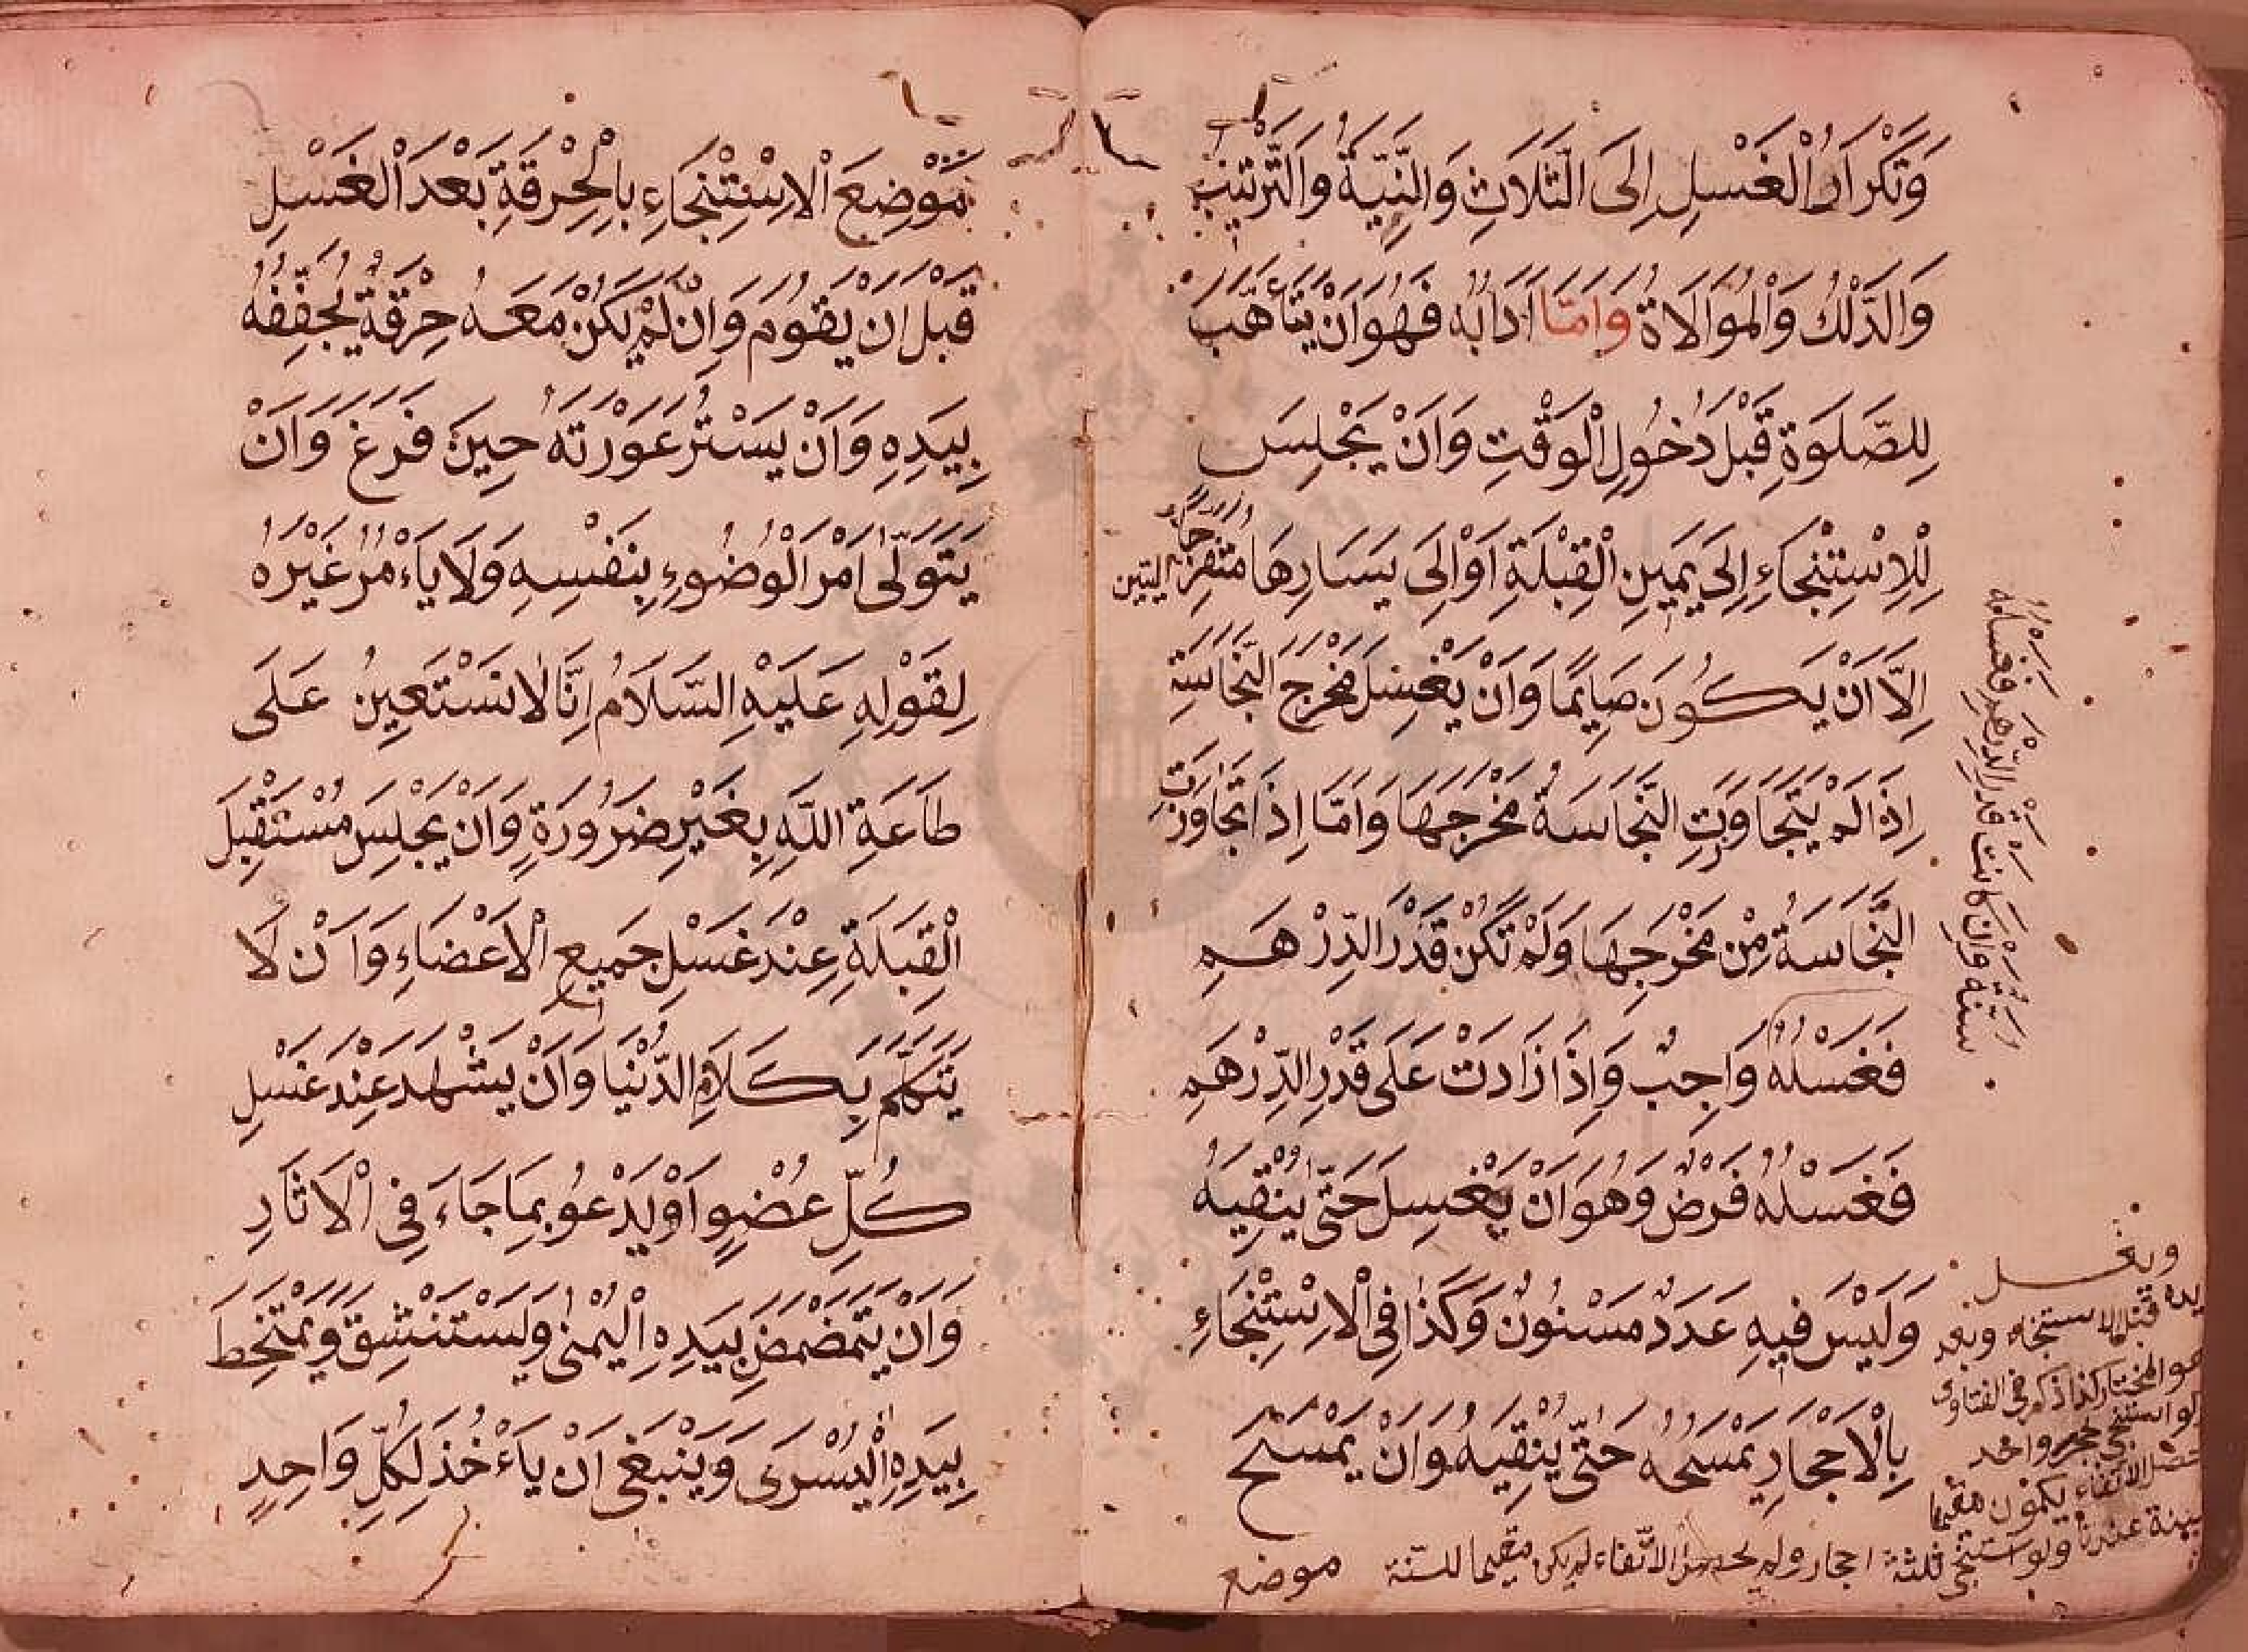 وَتَكْرَارُ الْغَسْلِ اِلَى الثَّلَاثِ وَالنِّيَّةُ وَالتَّرْتِيْبُ
وَالدَّلْكُ وَالْمُوَالَاةُ وَاَمَّا اٰدَابُهُ فَهُوَ اَنْ يَتَأَهَّبَ
لِلصَّلٰوةِ قَبْلَ دُخُولِ الْوَقْتِ وَاَنْ يَجْلِسَ
لِلْاِسْتِنْجَاءِ اِلَى يَمِينِ الْقِبْلَةِ اَوْ اِلَى يَسَارِهَا مُتَفَرِّجَ اليتين
اِلَّا اَنْ يَكُونَ صَايِمًا وَاَنْ يَغْسِلَ مَخْرَجَ النَّجَاسَةِ
اِذَا لَمْ يَتَجَاوَزَتِ النَّجَاسَةُ مَخْرَجَهَا وَاَمَّا اِذَا تَجَاوَزَتْ
النَّجَاسَةُ مِنْ مَخْرَجِهَا وَلَمْ تَكُنْ قَدْرَ الدِّرْهَمِ
فَغَسْلُهُ سنة وان كانت قدر الدرهم فغسله
وَاجِبٌ وَاِذَا زَادَتْ عَلَى قَدْرِ الدِّرْهَمِ
فَغَسْلُهُ فَرْضٌ وَهُوَ اَنْ يَغْسِلَ حَتَّى يُنْقِيَهُ
وَلَيْسَ فِيهِ عَدَدٌ مَسْنُونٌ وَكَذَا فِى الْاِسْتِنْجَاءِ
بِالْاَحْجَارِ يَمْسَحُهُ حَتَّى يُنْقِيَهُ وَاَنْ يَمْسَحَ
ويغسل
يده قبل الاستنجاء وبعده
هو المختار كذا ذكر فى الفتاوى
لو استنجى بحجر واحد
حصل الانقاء يكون مقيما
عندنا ولو استنجى بثلثة احجار ولم يحصل الانقاء لم يكن مقيما للسنة
موضع
مَوْضِعَ الْاِسْتِنْجَاءِ بِالْخِرْقَةِ بَعْدَ الْغَسْلِ
قَبْلَ اَنْ يَقُومَ وَاِنْ لَمْ يَكُنْ مَعَهُ خِرْقَةٌ يُجَفِّفُهُ
بِيَدِهِ وَاَنْ يَسْتُرَ عَوْرَتَهُ حِينَ فَرَغَ وَاَنْ
يَتَوَلَّى اَمْرَ الْوُضُوءِ بِنَفْسِهِ وَلَا يَاءْمُرُ غَيْرَهُ
لِقَوْلِهِ عَلَيْهِ السَّلَامُ اِنَّا لَا نَسْتَعِينُ عَلَى
طَاعَةِ اللّٰهِ بِغَيْرِ ضَرُورَةٍ وَاَنْ يَجْلِسَ مُسْتَقْبِلَ
الْقِبْلَةِ عِنْدَ غَسْلِ جَمِيعِ الْاَعْضَاءِ وَاَنْ لَا
يَتَكَلَّمَ بِكَلَامِ الدُّنْيَا وَاَنْ يَشْهَدَ عِنْدَ غَسْلِ
كُلِّ عُضْوٍ اَوْ يَدْعُوَ بِمَا جَاءَ فِى الْاٰثَارِ
وَاَنْ يَتَمَضْمَضَ بِيَدِهِ الْيُمْنٰى وَيَسْتَنْشِقَ وَيَمْتَخِطَ
بِيَدِهِ الْيُسْرَى وَيَنْبَغِى اَنْ يَاءْخُذَ لِكُلِّ وَاحِدٍ